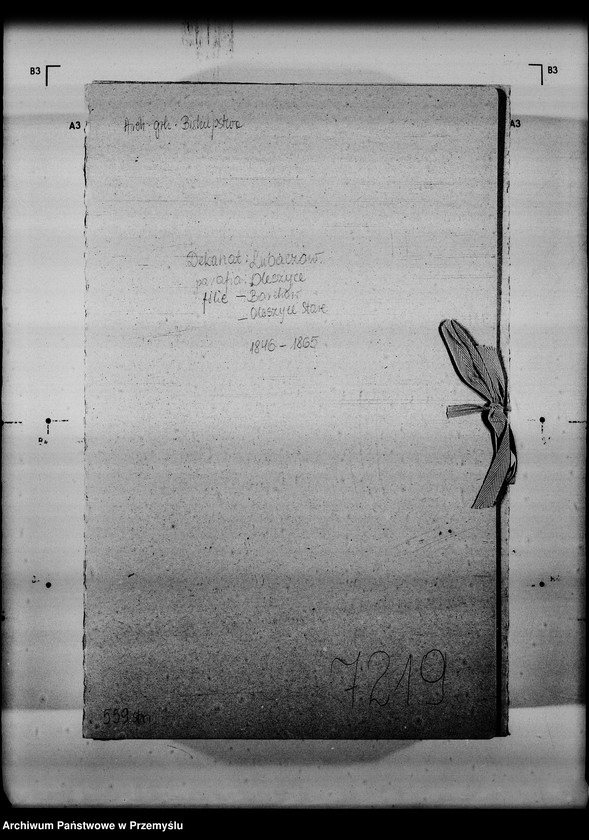 B3
B3
A3
A3
Arch. grk. Biskupstwa
Dekanat: Lubaczów
parafia: Oleszyce
filie – Borchów
– Oleszyce Stare
1846 – 1865
7219
559 str.
Archiwum Państwowe w Przemyślu